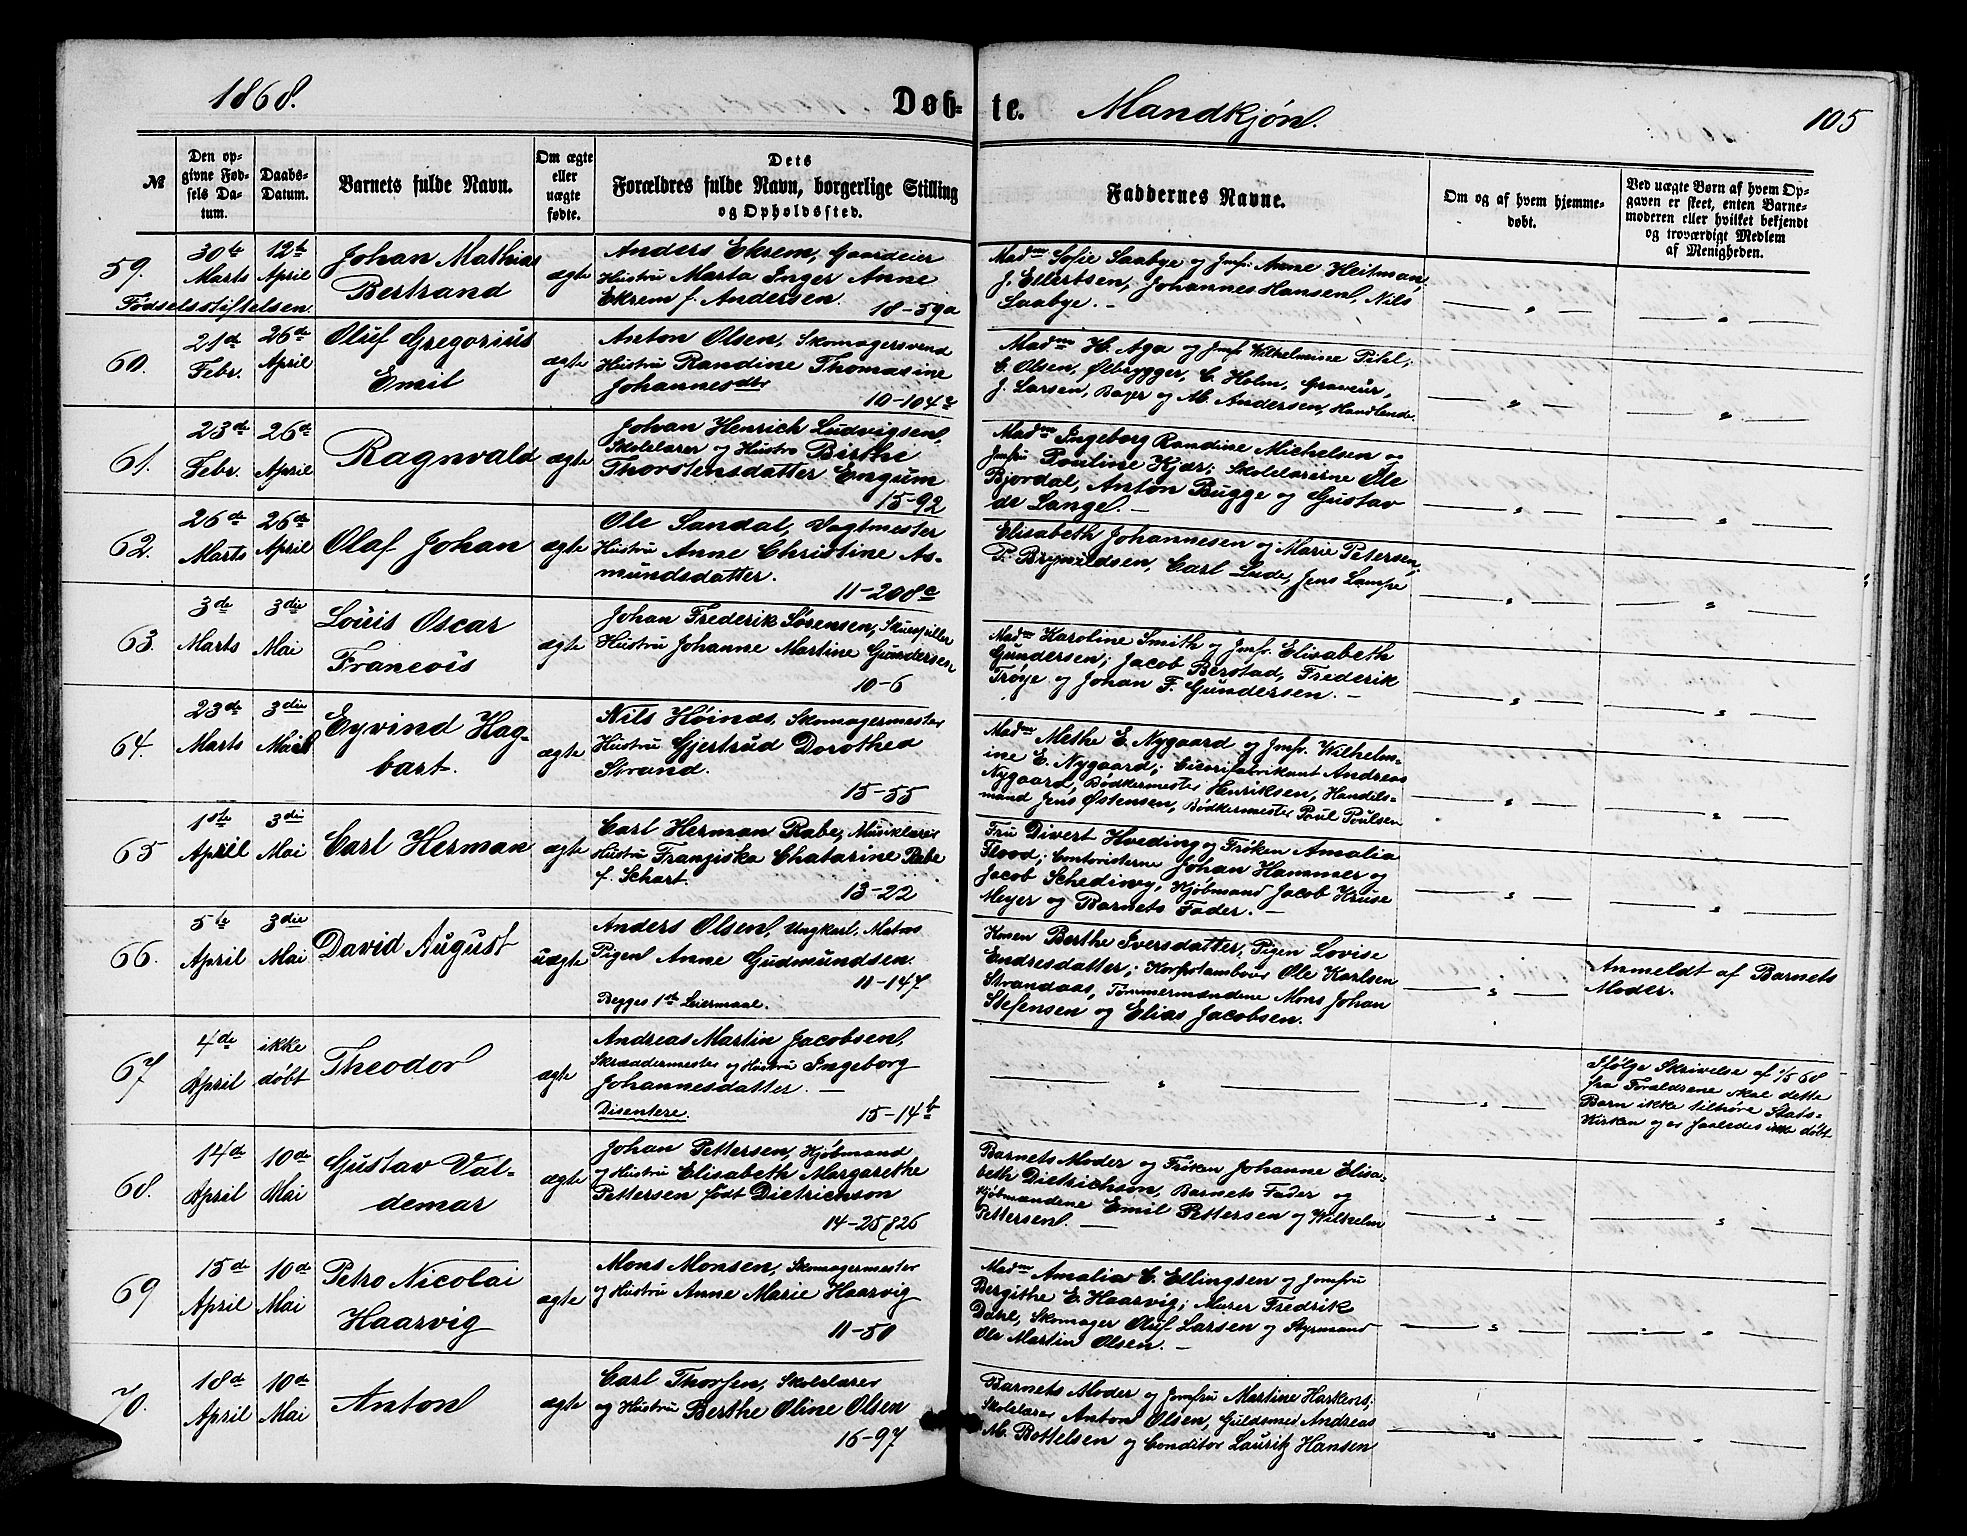 1868. Døb- te. Mandkjøn. 105
№
Den op-
givne Fød-
sels Da-
tum.
Daabs-
Datum.
Barnets fulde Navn.
Om ægte
eller
uægte
fødte.
Dets
Forældres fulde Navn, borgerlige Stilling
og Opholdssted.
Faddernes Navne.
Om og af hvem hjemme-
døbt.
Ved uægte Børn af hvem Op-
gaven er skeet, enten Barne-
moderen eller hvilket bekjendt
og troværdigt Medlem
af Menigheden.
59.
Fødselsstiftelsen.
30te
Marts
12te
April
Johan Mathias
Bertrand
ægte
Anders Ekrem, Gaardeier
Hustru Marta Inger Anne
Ekrem f. Andersen.
18-59a
Madm Sofie Saabye og Jmfr: Anne Heitman,
J. Ellertsen, Johannes Hansen, Nils
Saabye. —
— " —
— " —
60.
21de
Febr.
26de
April
Oluf Gregorius
Emil
ægte
Anton Olsen, Skomagersvend
Hustru Randine Thomasine
Johannesdtr
10-104a
Madm H. Aga og Jmfr Wilhelmine Pitel;
C. Olsen, Ølbrygger, C. Holm, Graveur,
J. Larsen, Bager og M. Andersen, Handlende.
— " —
— " —
61.
23de
Febr.
26de
April
Ragnvald
ægte
Johan Henrich Ludvigsen,
Skolelærer og Hustro Birthe
Thorstensdatter Engum
15-92
Madm Ingeborg Randine Michelsen og
Jmfru Pouline Kjær; Skolelærerne Ole
Bjordal, Anton Bugge og Gustav
de Lange. —
— " —
— " —
62.
26de
Marts
26de
April
Olaf Johan
ægte
Ole Sandal, Vagtmester
Hustru Anne Christine As-
mundsdatter.
11-208c
Elisabeth Johannesen og Marie Petersen;
P. Brynildsen, Carl Lude, Jens Lampe
— " —
— " —
63.
3de
Marts
3die
Mai
Louis Oscar
Francois
ægte
Johan Frederik Sørensen, Skuespiller
Hustru Johanne Martine Gundersen
10-6
Madm Karoline Smith og Jmfr. Elisabeth
Gundersen; Jacob Berstad, Frederik
Trøye og Johan F. Gundersen. —
— " —
— " —
64.
23de
Marts
3die
Mai
Eyvind Hag-
bart.
ægte
Nils Høinæs, Skomagermester
Hustru Gjertrud Dorothea
Strand.
15-55
Madm Methe E. Nygaard og Jmfr. Wilhelm-
ine E. Nygaard; Cicorifabrikant Andreas
Nygaard, Bødkermester Henriksen, Handels-
mand Jens Østensen, Bødkermester Poul Poulsen
— " —
— " —
65
1ste
April
3die
Mai
Carl Herman
ægte
Carl Herman Rabe, Musiklærer
Hustru Franziska Chatarine Rabe
f. Schart.
13-22
Fru Divert Hveding og Frøken Amalia
Flood; Contoristerne Johan Hammer og
Jacob Schediwy, Kjøbmand Jacob Kruse
Meyer og Barnets Fader. —
— " —
— " —
66.
5te
April
3die
Mai
David August
uægte
Anders Olsen, Ungkarl, Matros
Pigen Anne Gudmundsen.
11-147
Begges 1ste Leiermaal.
Konen Berthe Iversdatter, Pigen Lovise
Endresdatter; Korpstambour Ole Karlsen
Strandaas, Tømmermændene Mons Johan
Stefensen og Elias Jacobsen.
— " —
Anmeldt af Barnets
Moder.
67
4de
April
ikke
døbt
Theodor
ægte
Andreas Martin Jacobsen,
Skræddermester og Hustru Ingeborg
Johannesdatter. —
Disentere.
15-14b
— " —
— " —
Ifølge Skrivelse af 1/5 68
fra Forældrene skal dette
Barn ikke tilhøre Stats-
Kirken og er saaledes ikke døbt
68.
14de
April
10de
Mai
Gustav Val-
demar
ægte
Johan Pettersen, Kjøbmand
og Hustru Elisabeth Margarethe
Pettersen født Dietrichson
14-25&26
Barnets Moder og Frøken Johanne Elisa-
beth Dietrichson, Barnets Fader og
Kjøbmændene Emil Pettersen og Wilhelm
Pettersen. —
— " —
— " —
69
15de
April
10de
Mai
Petro Nicolai
Haarvig
ægte
Mons Monsen, Skomagermester
og Hustru Anne Marie Haarvig
11-50
Madm Amalia C. Ellingsen og Jomfru
Bergithe E. Haarvig; Murer Fredrik
Dahl, Skomager Oluf Larsen og Styrmand
Ole Martin Olsen. —
— " —
— " —
70.
18de
April
10de
Mai
Anton
ægte
Carl Thorsen, Skolelærer
og Hustru Berthe Oline Olsen
16-97
Barnets Moder og Jomfru Martine Harkens;
Skolelærer Anton Olsen, Guldsmed Andreas
M. Bottelsen og Conditor Lauritz Hansen
— " —
— " —